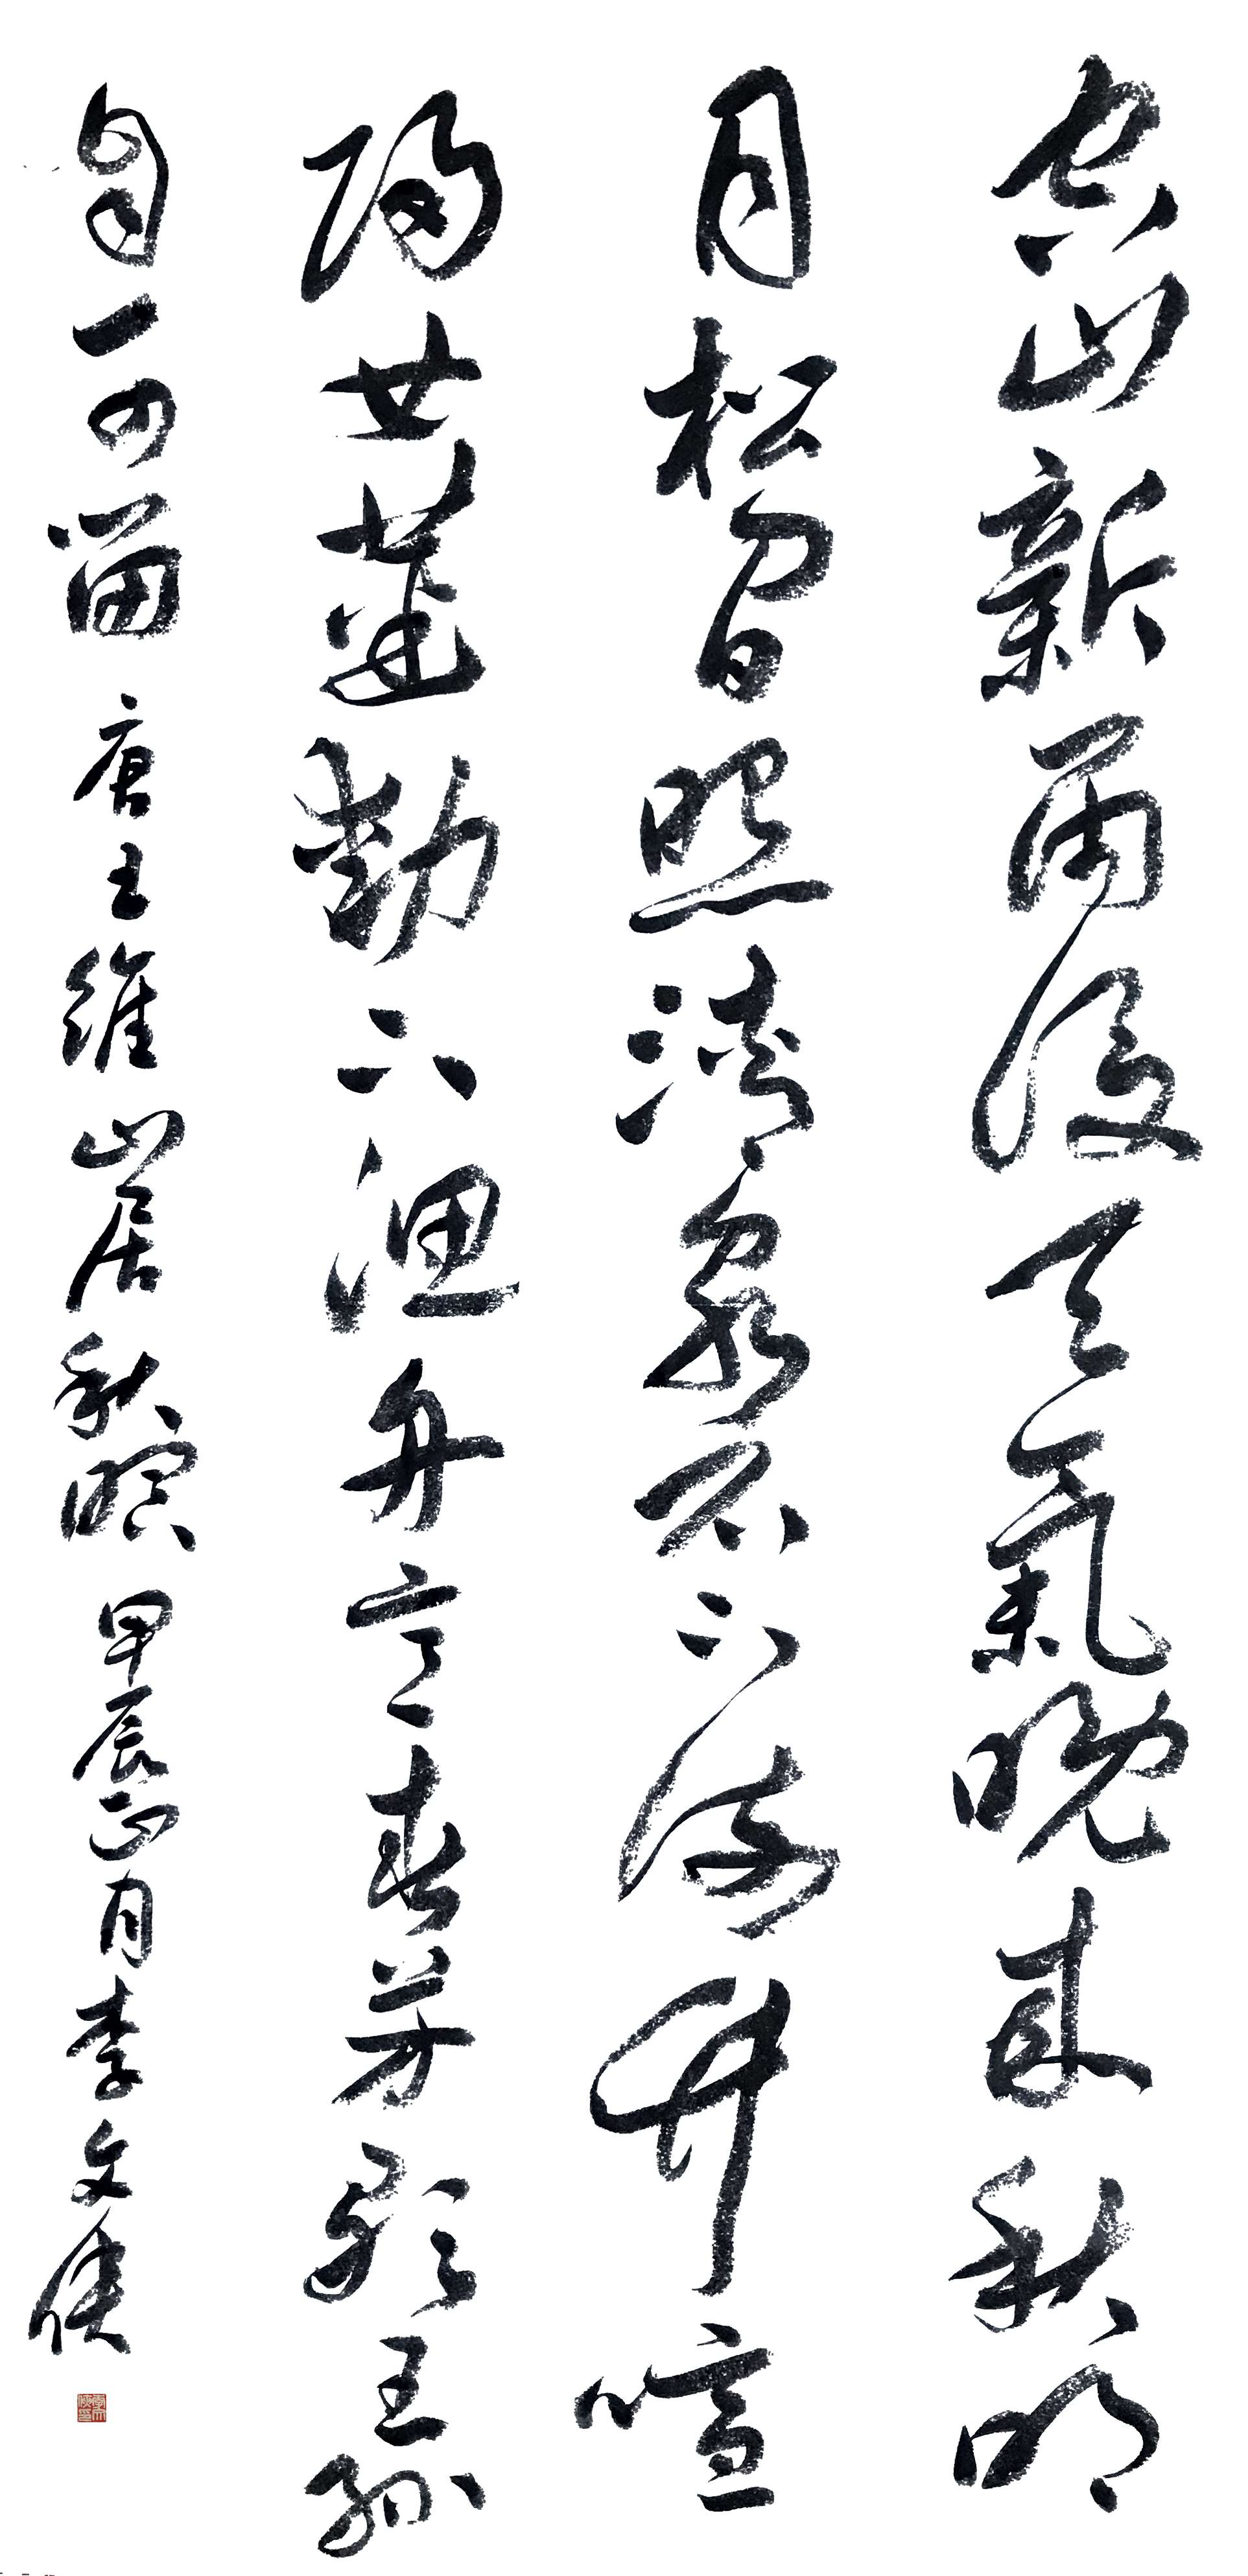 空山新雨後天氣晚來秋明
月松間照清泉石上流竹喧
歸女蓮動下漁舟意春芳歇王孫
自可留 唐王維山居秋暝 甲辰正月李文俠